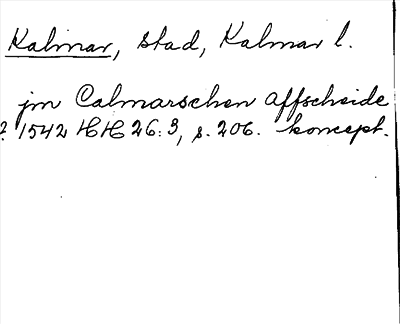 Kalmar, stad, Kalmar l.
jm Calmarschen affscheide
? 1542 HH 26:3, s. 206. koncept.